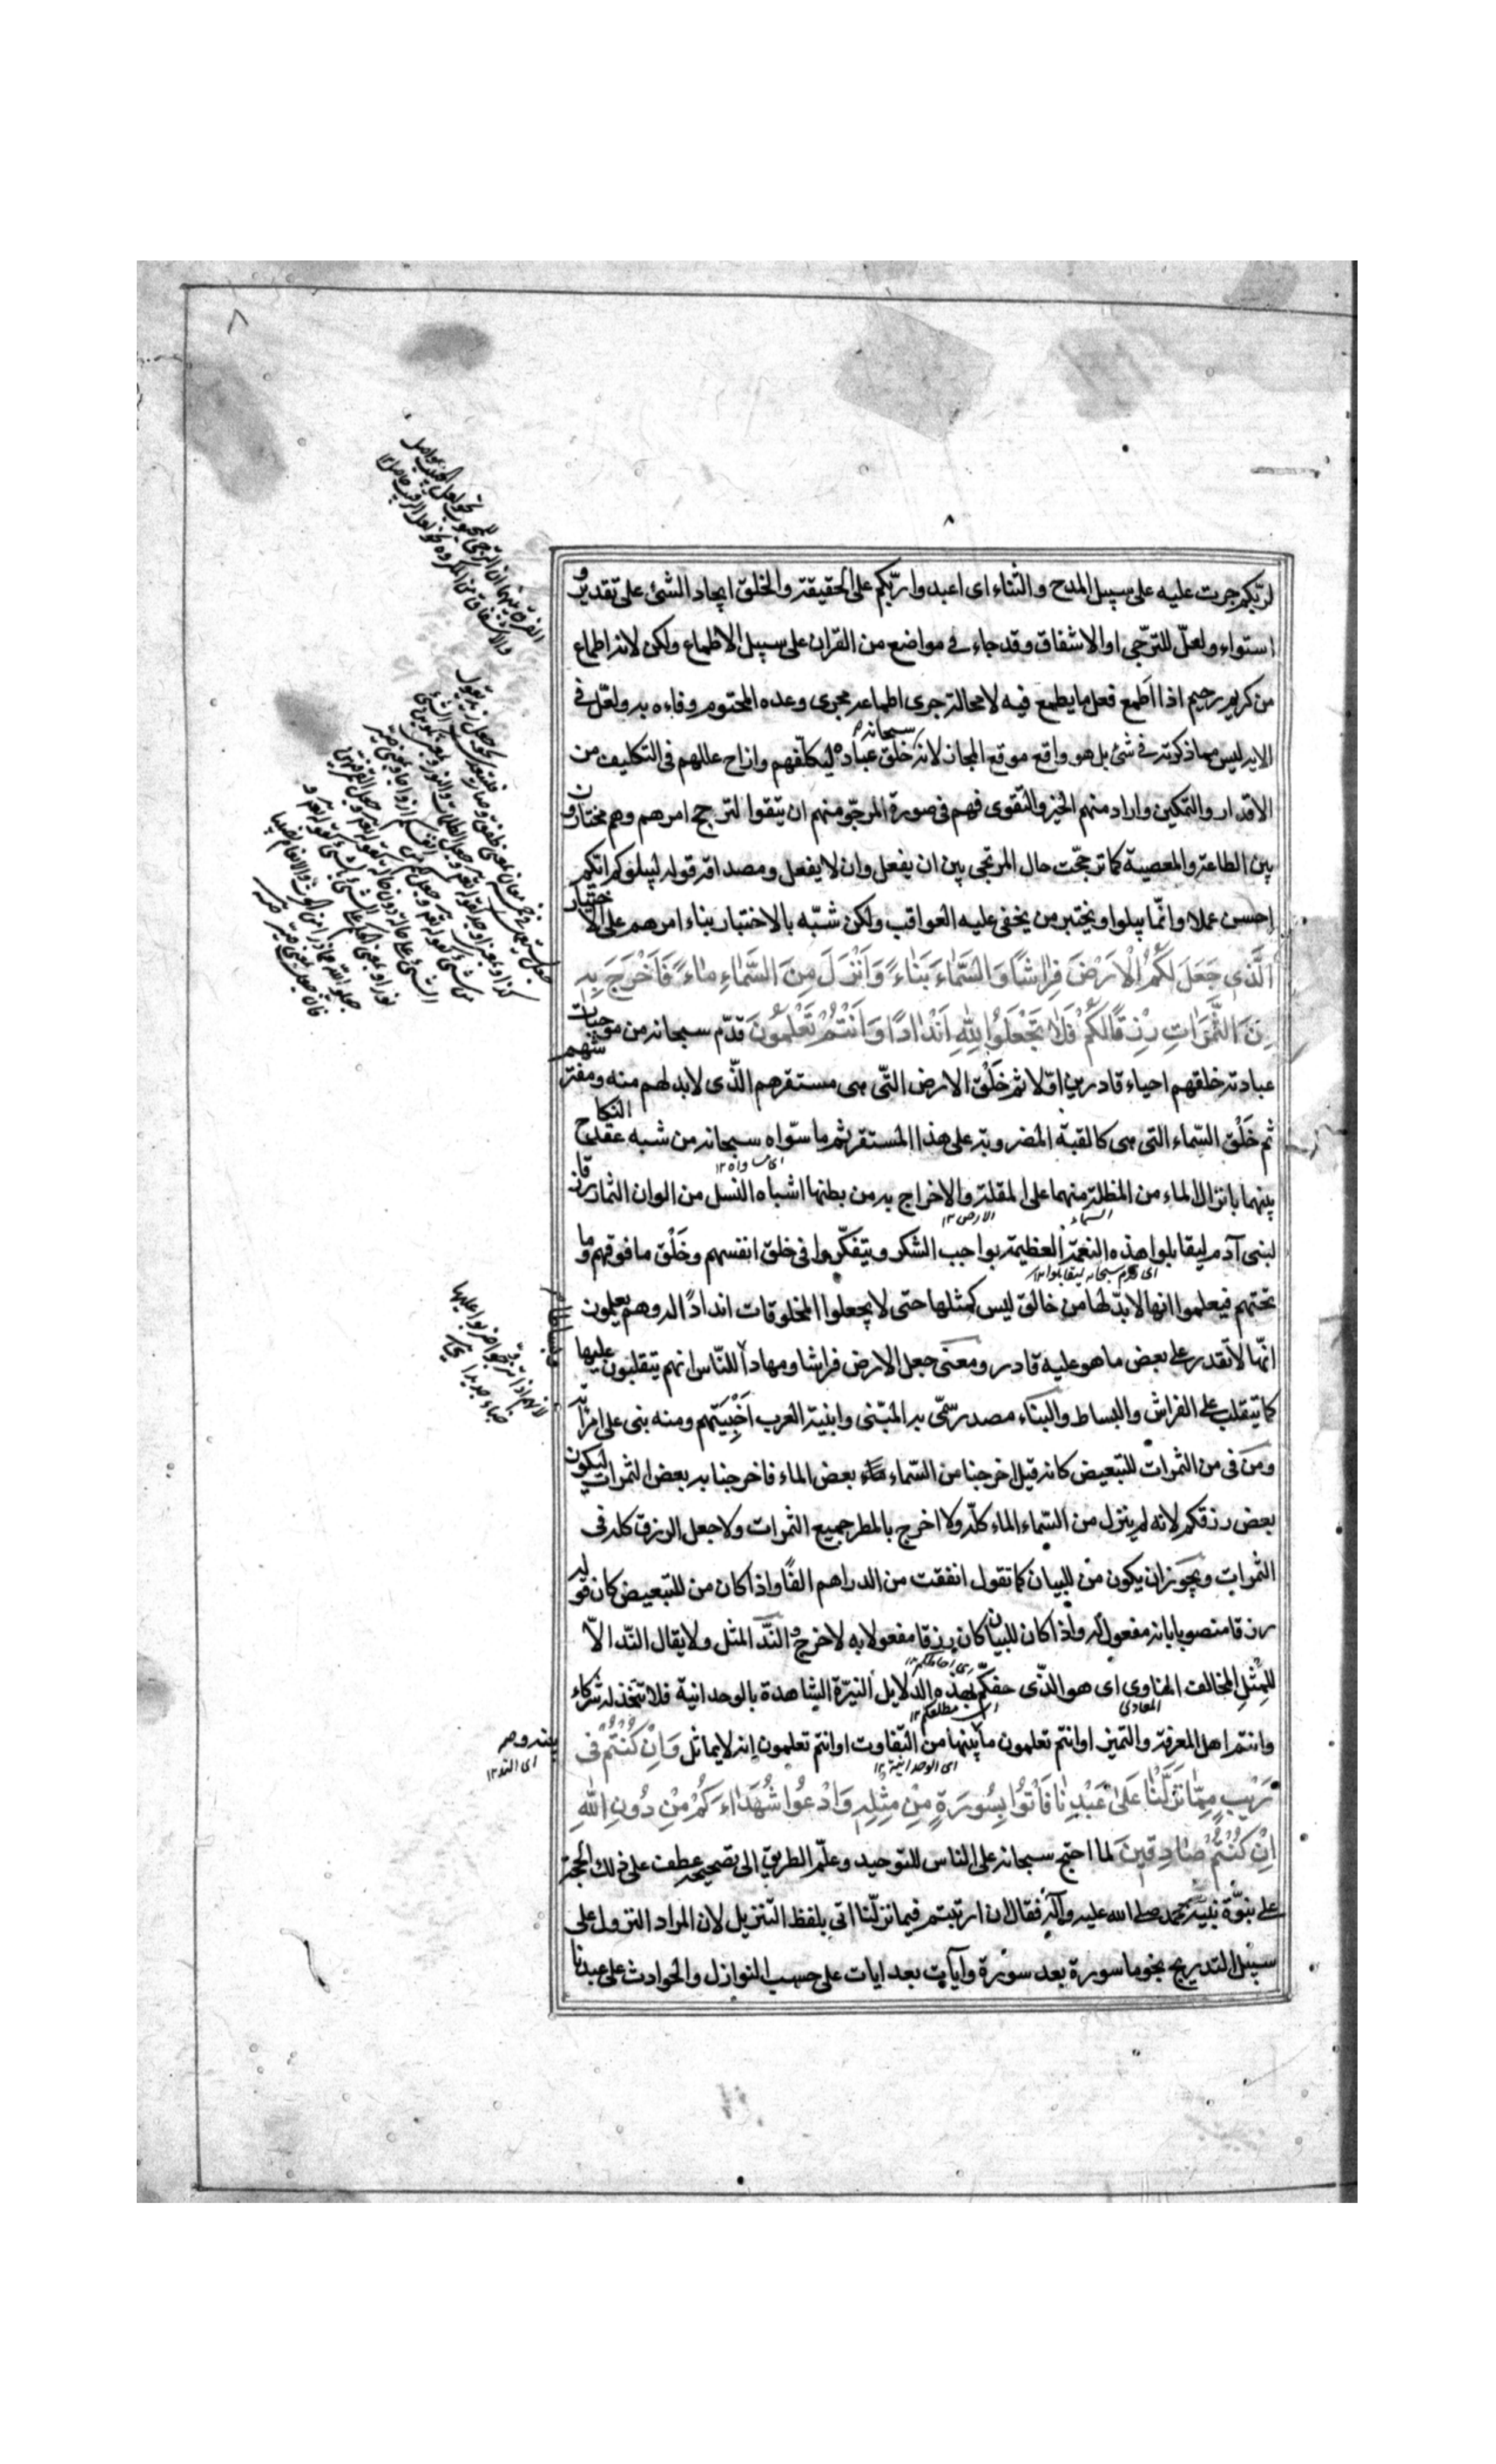 ٨
٨
لربّكم جرت عليه على سبيل المدح و الثناء اى اعبدوا ربّكم على الحقيقة و الخلق ايجاد الشئ على تقدير و
استواء و لعلّ للترجّى او الاشفاق و قد جاء فى مواضع من القران على سبيل الاطماع ولكن لانه اطماع
من كريم رحيم اذا اطمع فعل ما يطمع فيه لا محالة جرى اطماعه مجرى وعده المحتوم وفاءه به و لعلّ فى
الايه ليس مما ذكرته فى شئ بل هو واقع موقع المجاز لانه سبحانه خلق عباده ليكلّفهم و ازاح عللهم فى التكليف من
الاقدار و التمكين و اراد منهم الخير و التقوى فهم فى صورة المرجوّ منهم ان يتقوا لترجح امرهم و هم مختارون
بين الطاعة و المعصية كما ترجّحت حال المرتجى بين ان يفعل و ان لا يفعل و مصداقه قوله ليبلوكم ايّكم
احسن عملا و انّما يبلو و يختبر من يخفى عليه العواقب ولكن شبّه بالاختبار بناء امرهم على الاختيار
اَلَّذى جَعَلَ لَكُمُ الْاَرْضَ فِرَاشًا وَ السَّمَاءَ بِنَاءً وَ اَنْزَلَ مِنَ السَّمَاءِ مَاءً فَاَخْرَجَ بِهِ
مِنَ الثَّمَرَاتِ رِزْقًا لَكُمْ فَلَا تَجْعَلُوا لِلّهِ اَنْدَادًا وَ اَنْتُمْ تَعْلَمُونَ قدّم سبحانه من موجبات
عبادته خلقهم احياء قادرين اوّلا ثم خَلْق الارض التّى هى مستقرهم الّذى لابد لهم منه و مفترشهم
ثم خَلْق السّماء التى هى كالقبة المضروبة على هذا المستقر ثم ما سوّاه سبحانه من شبه عقد النكاح
بينهما بانزال الماء من المظلة منهما على المقلة و الاخراج به من بطنها اشباه النسل من الوان الثمار رزقا
السماء الارض ١٢
لبنى آدم ليقابلوا هذه النعمة العظيمة بواجب الشكر و يتفكّروا فى خلق انفسهم و خَلْق ما فوقهم و ما
تحتهم فيعلموا انها لابدّ لها من خالق ليس كمثلها حتى لا يجعلوا المخلوقات اندادًا له و هم يعلمون
انّها لا تقدر على بعض ما هو عليه قادر و معنى جعل الارض فراشا و مهادا للنّاس انهم يتقلبون عليها
كما يتقلب على الفراش و البساط و البناء مصدر سمّى به المبنى و ابنية العرب اَخْبِيَتهم و منه بنى على امرأته
و مَن فى من الثمرات للتبعيض كانه قيل اخرجنا من السّماء بعض الماء فاخرجنا به بعض الثمرات ليكون
بعض رزقكم لانه لم ينزل من السّماء الماء كلّه ولا اخرج بالمطر جميع الثمرات ولا جعل الرزق كله فى
الثمرات و يجوز ان يكون من للبيان كما تقول انفقت من الدراهم الفًا و اذا كان من للتبعيض كان قوله
رزقا منصوبا بانه مفعول له و اذا كان للبيان كان رزقا مفعولا به لاخرج و النّدّ المثل ولا يقال النّد الاّ
للمِثلِ المخالف المناوى اى هو الذّى حفكّم بهذه الدلايل النيرّة الشاهدة بالوحدانية فلا تتخذوا له شركاء
المعادى
و انتم اهل المعرفة و التميز او انتم تعلمون ما بينهما من التّفاوت او انتم تعلمون انه لا يماثل وَ اِنْ كُنْتُمْ فى
اى الوحدانية ١٢
رَيْبٍ مِمَّا نَزَّلْنَا عَلىٰ عَبْدِنَا فَأْتُوا بِسُورَةٍ مِنْ مِثْلِهِ وَ ادْعُوا شُهَدَاءَكُمْ مِنْ دُونِ اللهِ
اِنْ كُنْتُمْ صَادِقِينَ لما احتج سبحانه على الناس للتوحيد و علّم الطريق الى تصحيحه عطف على ذلك الحجة
على نبوّة نبيّه محمد صلى الله عليه و آله فقال ان ارتبتم فيما نزّلنا اتى بلفظ التنزيل لان المراد النزول على
سبيل التدريج نجوما سورة بعد سورة و آيات بعد ايات على حسب النوازل و الحوادث على عبدنا